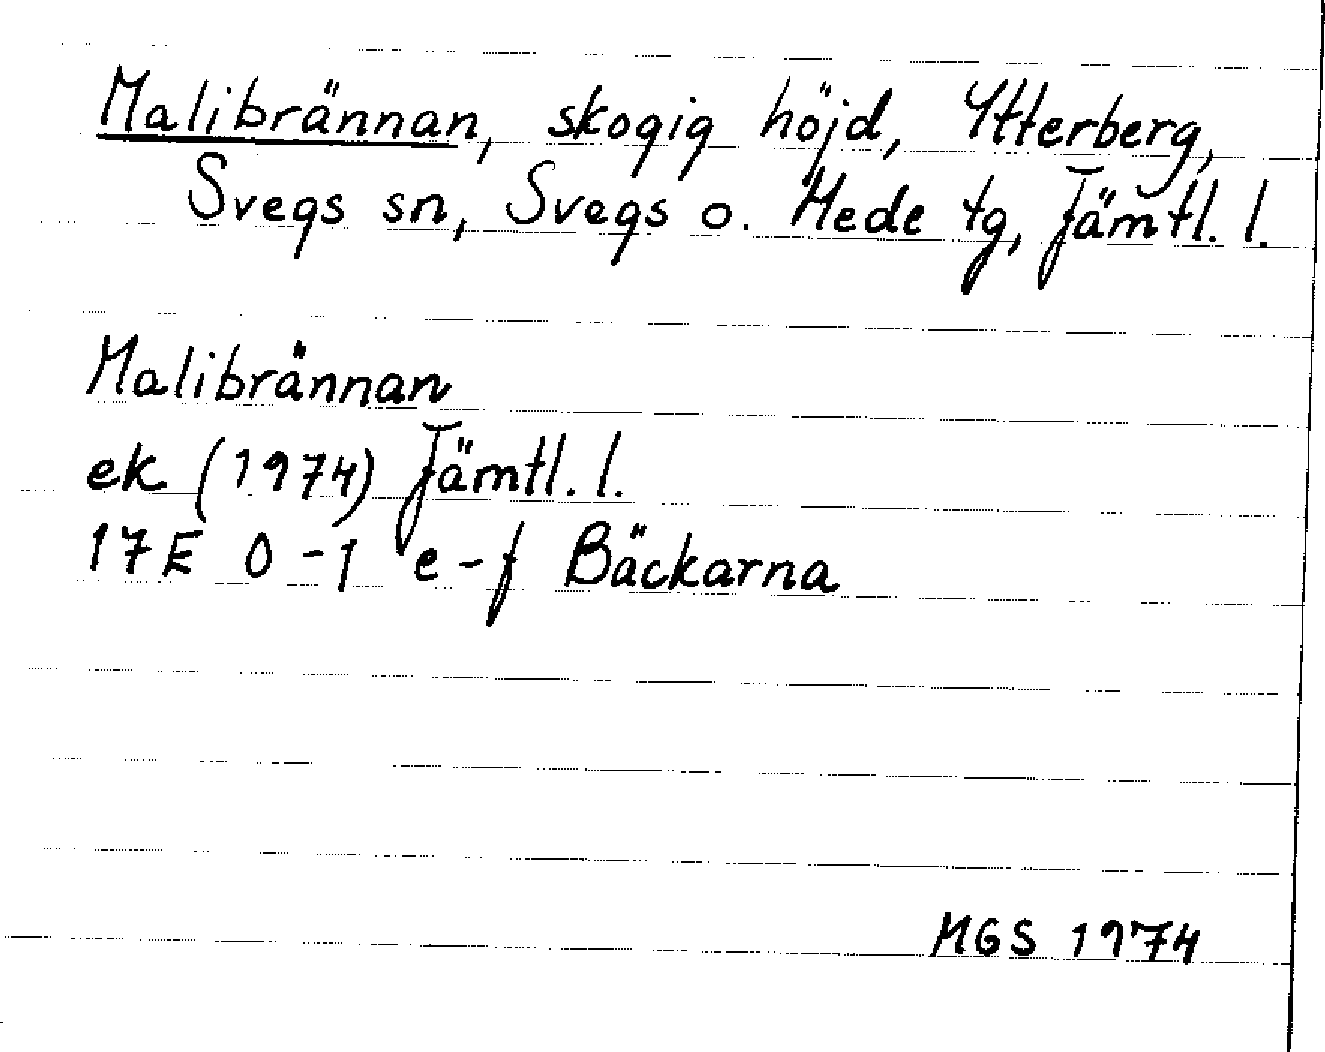 Malibrännan, skogig höjd, Ytterberg,
Svegs sn, Svegs o. Hede tg, Jämtl. l.
Malibrännan
ek (1974) Jämtl. l.
17E 0-1 e-f Bäckarna
MGS 1974